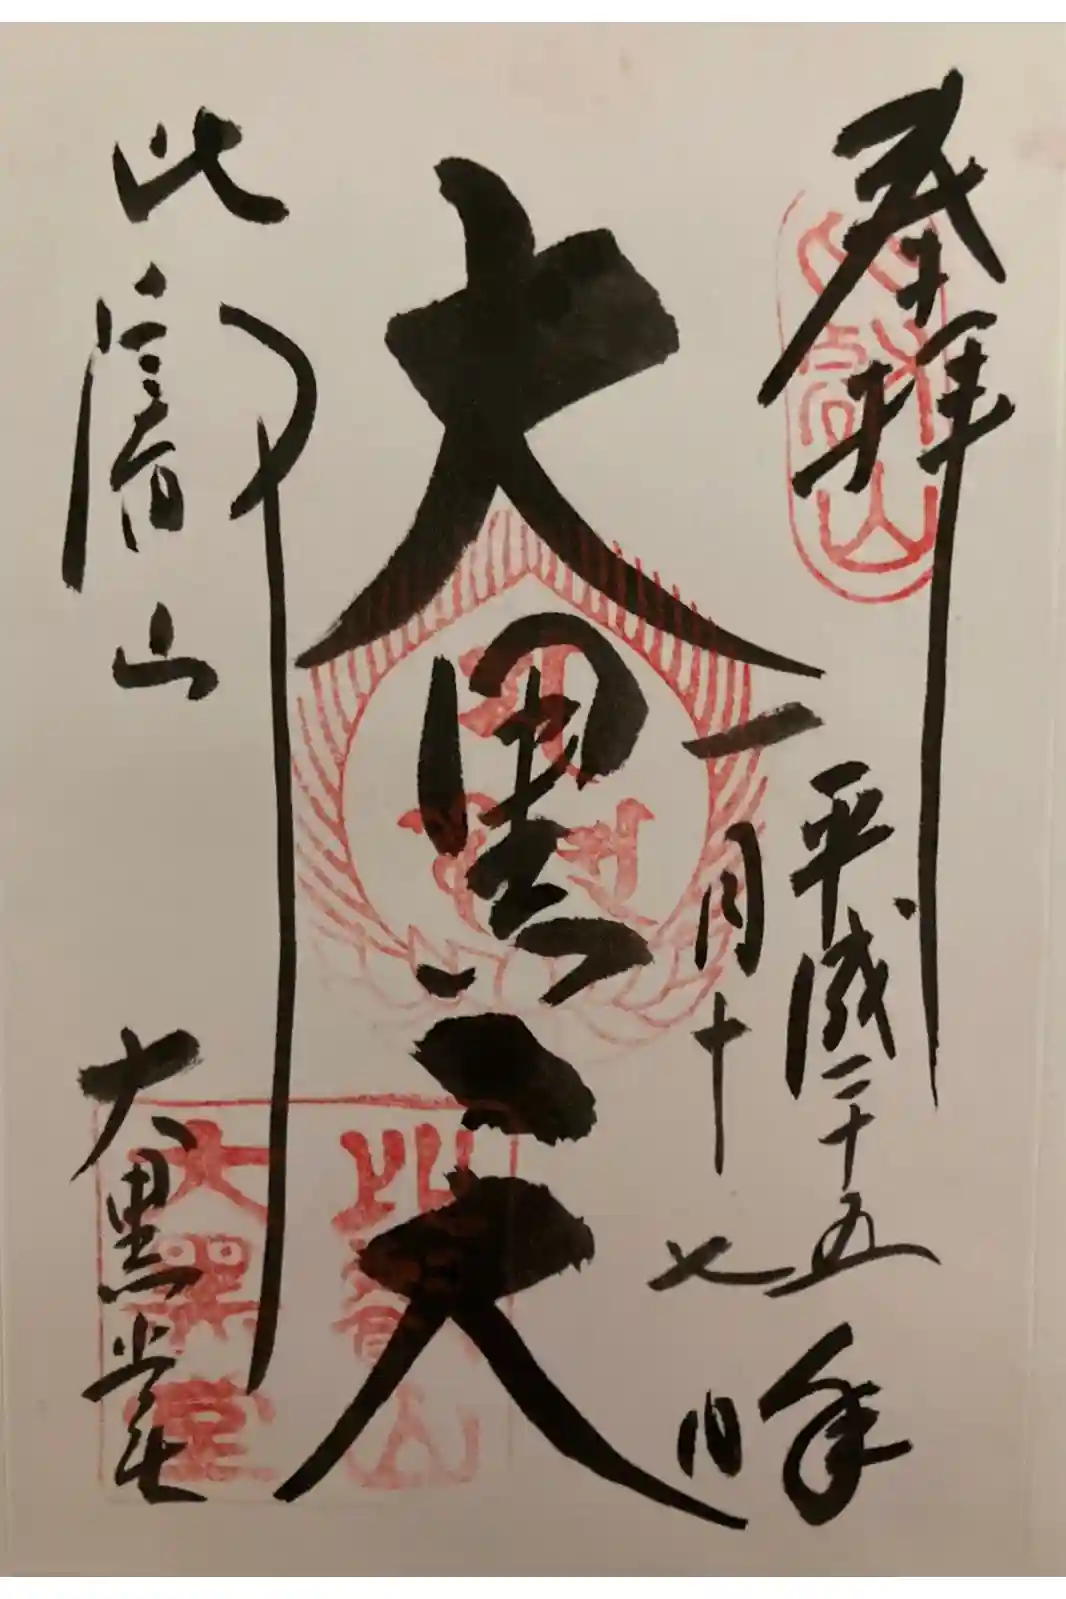 奉拝
平成二十五年
一月十七日
大黒天
比叡山
大黒堂
比叡山
比叡山
大黒堂